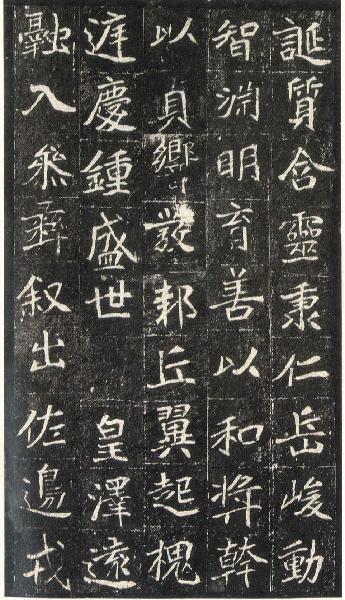 誕質含靈秉仁岳峻動
智淵明育善以和獎幹
以貞響發邦丘翼起槐
庭慶鍾盛世 皇澤遠
融入參彝叙出佐邊戎